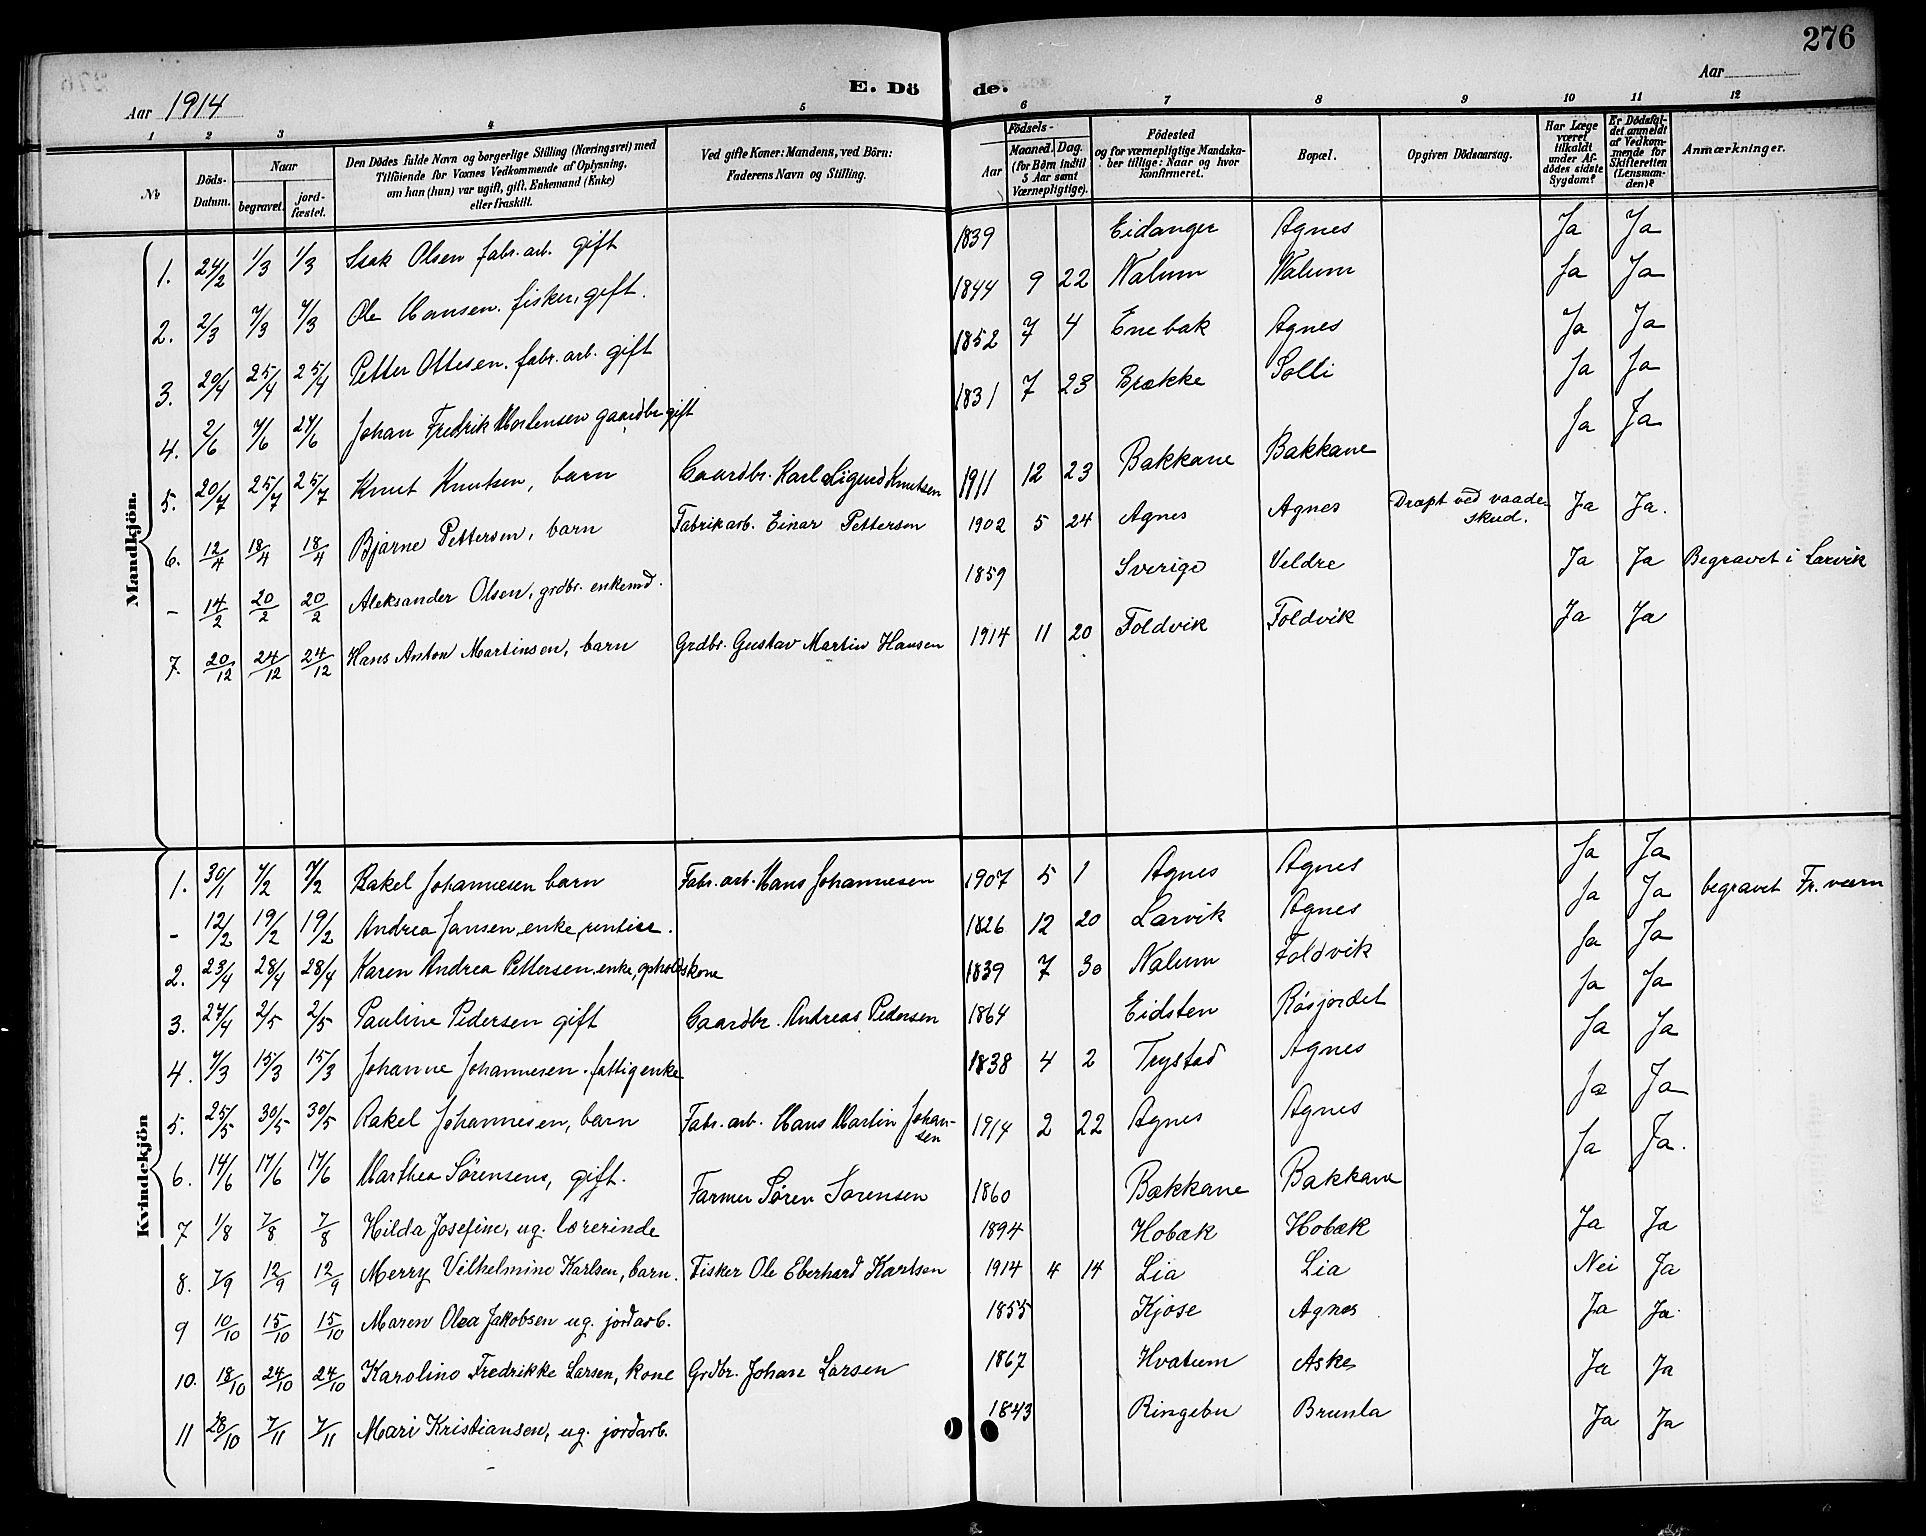 276
E. Dö de.
Aar 1914
Aar
1 2 3 4 5 6 7 8 9 10 11 12
№ Döds-Datum. Naar begravet. jord-fæstet. Den Dödes fulde Navn og borgerlige Stilling (Næringsvei) med Tilföiende for Voxnes Vedkommende af Oplysning, om han (hun) var ugift, gift, Enkemand (Enke) eller fraskilt. Ved gifte Koner: Mandens, ved Börn: Faderens Navn og Stilling. Födsels- Aar Maaned. Dag. (for Börn indtil 5 Aar samt Værnepligtige). Födested og for værnepligtige Mandskaber tillige: Naar og hvor konfirmeret. Bopæl. Opgiven Dödsaarsag. Har Læge været tilkaldt under Afdödes sidste Sygdom? Er Dödsfaldet anmeldt af Vedkommende for Skifteretten (Lensmanden)? Anmærkninger.
Mandkjön.
1. 24/2 1/3 1/3 Isak Olsen fabr. arb. gift 1839 Eidanger Agnes Ja Ja
2. 2/3 7/3 7/3 Ole Hansen. fisker, gift. 1844 9 22 Nalum Nalum Ja Ja
3. 20/4 25/4 25/4 Petter Ottesen. fabr. arb. gift 1852 7 4 Enebak Agnes Ja Ja
4. 2/6 7/6 27/6 Johan Fredrik Mortensen gaardbr gift 1831 7 23 Brække Solli Ja Ja
5. 20/7 25/7 25/7 Knut Knutsen, barn Gaardbr. Karl Sigurd Knutsen 1911 12 23 Bakkane Bakkane Ja Ja
6. 12/4 18/4 18/4 Bjarne Pettersen, barn Fabrikarb. Einar Pettersen 1902 5 24 Agnes Agnes Dræpt ved vaade-skud. Ja Ja.
- 14/2 20/2 20/2 Aleksander Olsen, grdbr. enkemd. 1859 Sverige Veldre Ja Ja Begravet i Larvik
7. 20/12 24/12 24/12 Hans Anton Martinsen, barn Grdbr. Gustav Martin Hansen 1914 11 20 Foldvik Foldvik Ja Ja
Kvindekjön
1. 30/1 7/2 7/2 Rakel Johannesen barn Fabr. arb. Hans Johannesen 1907 5 1 Agnes Agnes Ja Ja
- 12/2 19/2 19/2 Andrea Jansen, enke, rentier. 1826 12 20 Larvik Agnes Ja Ja begravet Fr. værn
2. 23/4 28/4 28/4 Karen Andrea Pettersen, enke, opholdskone 1839 7 30 Nalum Foldvik Ja Ja
3. 27/4 2/5 2/5 Pauline Pedersen gift Gaardbr. Andreas Pedersen 1864 Eidsten Råsjordet Ja Ja
4. 9/3 15/3 15/3 Johanne Johannesen. fattigenke 1838 4 2 Trystad Agnes Ja Ja
5. 25/5 30/5 30/5 Rakel Johannesen, barn Fabr. arb. Hans Martin Johan-sen 1914 2 22 Agnes Agnes Ja Ja
6. 14/6 17/6 17/6 Marthea Sörensens, gift. Farmer Sören Sørensen 1860 Bakkane Bakkane Ja Ja.
7 1/8 7/8 7/8 Hilda Josefine, ug. lærerinde 1894 Hobæk Hobæk Ja Ja
8. 7/9 12/9 12/9 Merry Vilhelmine Karlsen, barn. Fisker Ole Eberhard Karlsen 1914 4 14 Lia Lia Nei Ja
9 10/10 15/10 15/10 Maren Olea Jakobsen ug. jordarb. 1855 Kjose Agnes Ja Ja
10. 18/10 24/10 24/10 Karoline Fredrikke Larsen, kone Grdbr. Johan Larsen 1867 Hvatum Aske Ja Ja
11 28/10 7/11 7/11 Mari Kristiansen, ug. jordarb. 1843 Ringebu Brunla Ja Ja